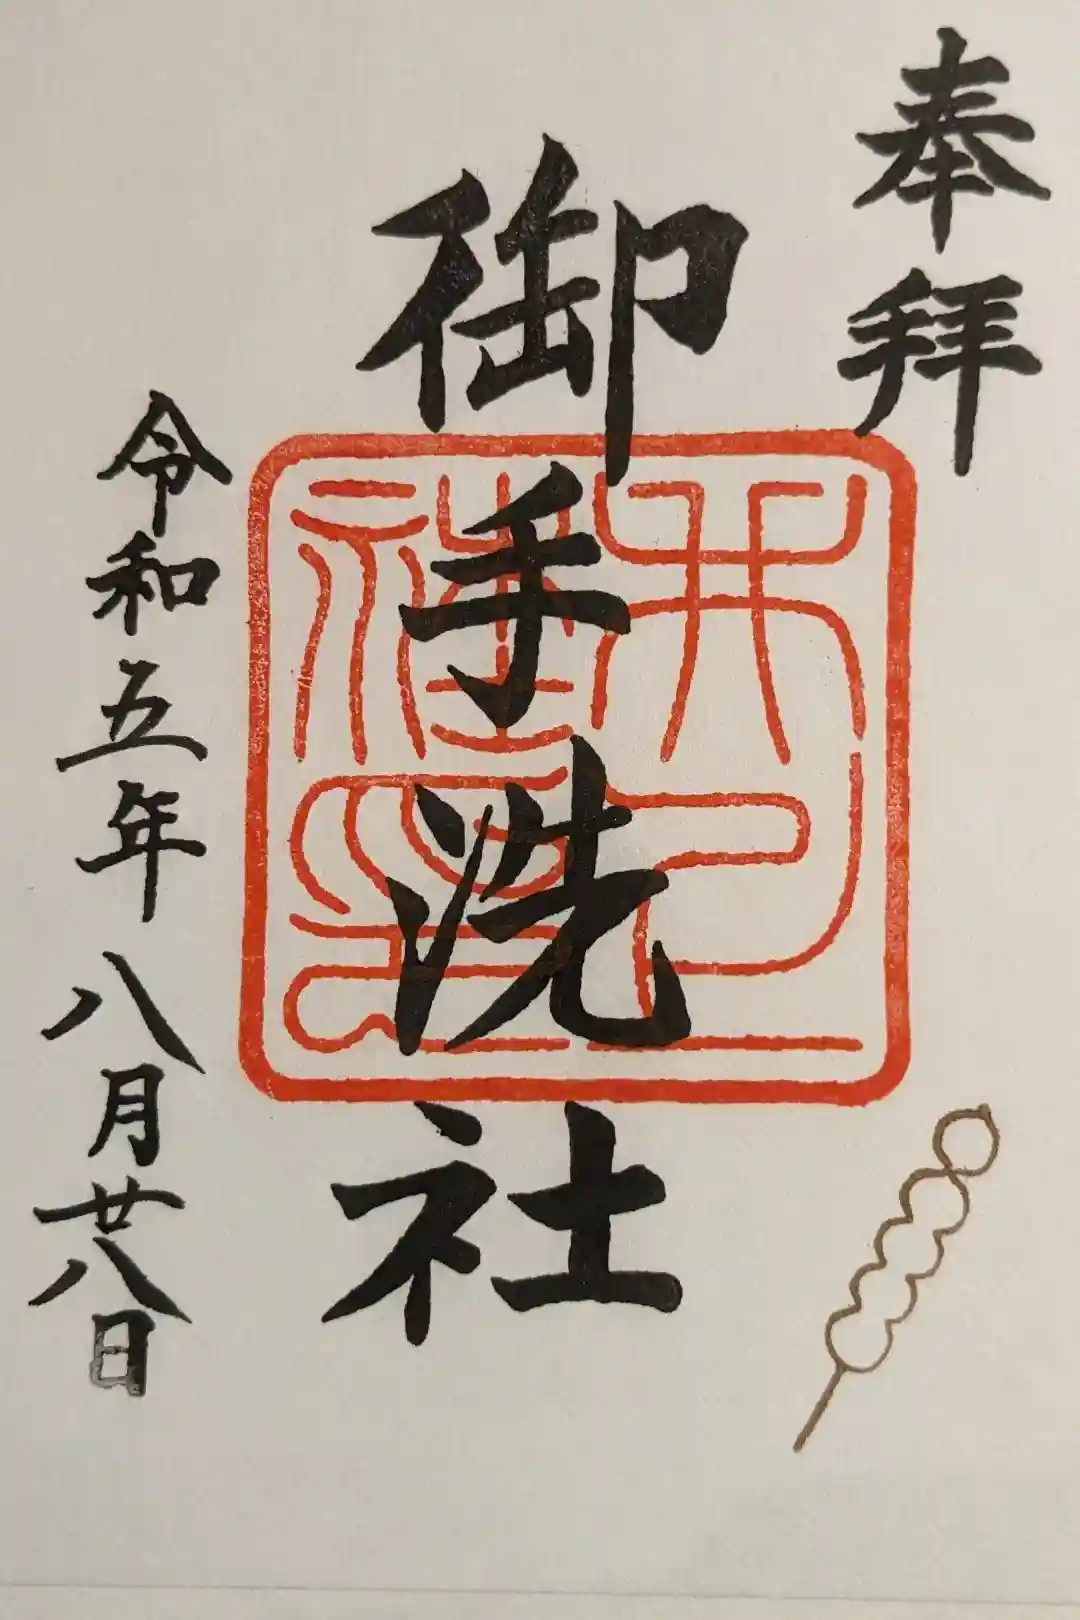 奉拝
御手洗社
令和五年八月廿八日